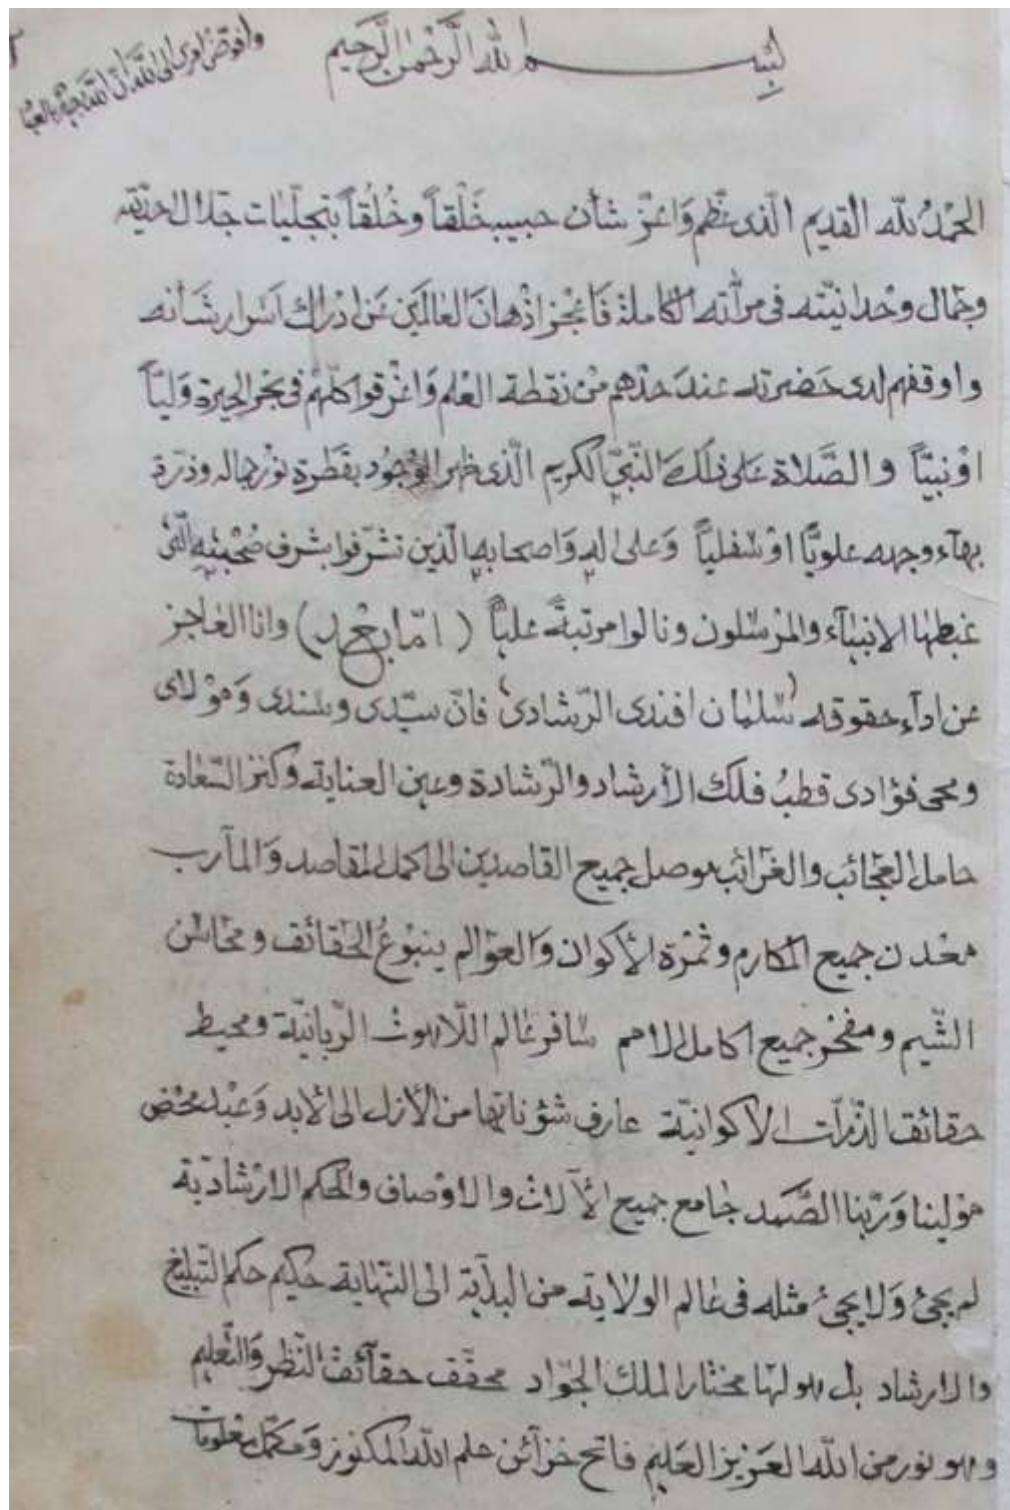 بسم الله الرحمن الرحيم
وافوض امرى الى الله ان الله بصير بالعباد
الحمد لله القديم الذى عظم واعز شأن حبيبه خَلْقاً وخُلُقاً بتجليات جلال احديته
وجمال وحدانيته فى مرآته الكاملة فاعجز اذهان العالمين عن ادراك اسرار شأنه
واوقفهم لدى حضرته عند حدهم من نقطة العلم واغرقوا كلهم فى بحر الحيرة وليّاً
او نبيّاً والصلاة على ذلك النبيّ الكريم الذى ظهر الوجود بقطرة نور جماله وذرة
بهاء وجهه علويّاً او سفليّاً وعلى اله واصحابه الذين تشرفوا بشرف صحبته التى
غبطها الانبياء والمرسلون ونالوا مرتبة علياً ( امّا بعد ) وانا العاجز
عن ادآء حقوقه (سليمان افندى الرشادى) فانّ سيّدى وسندى ومولاى
ومحى فؤادى قطبُ فلك الأرشاد والرشادة وعين العناية وكنز السعادة
حامل العجائب والغرائب موصل جميع القاصدين الى اكمل المقاصد والمآرب
معدن جميع المكارم وثمرة الأكوان والعوالم ينبوعُ الحقائق ومحاسن
الشّيم ومفخر جميع اكامل الامم سافر عالم اللاهوت الربانيّة ومحيط
حقائق الذرّات الاكوانيّة عارف شؤناتها من الأزل الى الأبد وعبد محض
مولينا وربّنا الصّمد جامع جميع الألآت والاوصاف والحكم الارشاديّة
لم يجئ ولا يجئ مثله فى عالم الولاية من البداية الى النهاية حكيم حكم التبليغ
والارشاد بل هو لها مختار الملك الجواد محقق حقائق النظر والتعليم
وهو نور من الله العزيز العليم فاتح خزآئن علم الله المكنوز ومكمل معلومات